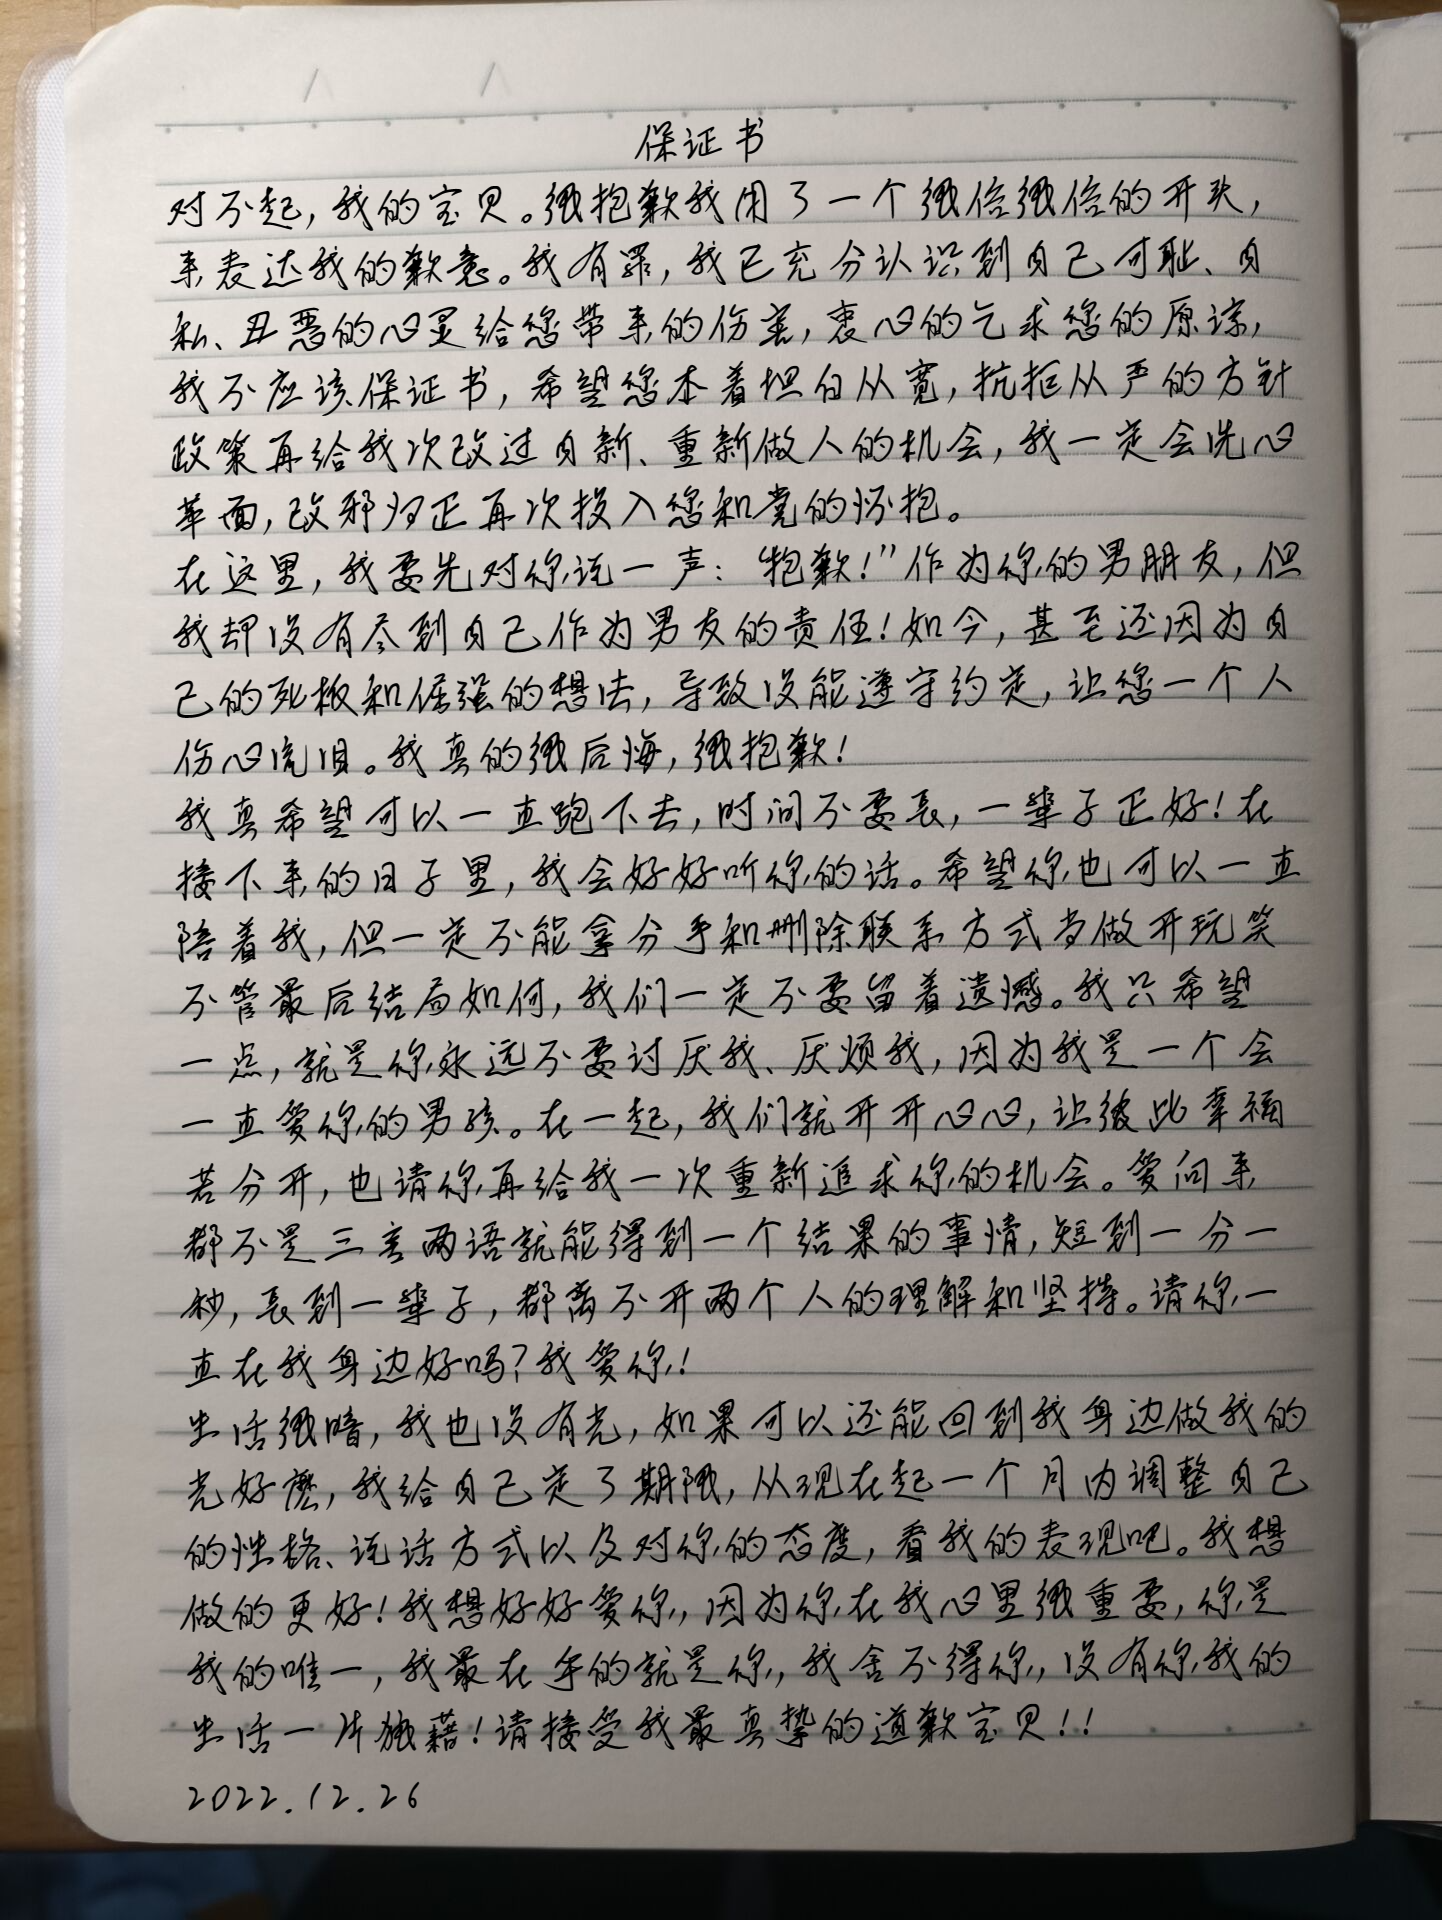 保证书
对不起，我的宝贝。很抱歉我用了一个很俗很俗的开头，
来表达我的歉意。我有罪，我已充分认识到自己可耻、自
私、丑恶的心灵给您带来的伤害，衷心的乞求您的原谅，
我不应该保证书，希望您本着坦白从宽，抗拒从严的方针
政策再给我次改过自新、重新做人的机会，我一定会洗心
革面，改邪归正再次投入您和党的怀抱。
在这里，我要先对你说一声：“抱歉！”作为你的男朋友，但
我却没有尽到自己作为男友的责任！如今，甚至还因为自
己的死板和倔强的想法，导致没能遵守约定，让您一个人
伤心流泪。我真的很后悔，很抱歉！
我真希望可以一直跑下去，时间不要长，一辈子正好！在
接下来的日子里，我会好好听你的话。希望你也可以一直
陪着我，但一定不能拿分手和删除联系方式当做开玩笑
不管最后结局如何，我们一定不要留着遗憾。我只希望
一点，就是你永远不要讨厌我、厌烦我，因为我是一个会
一直爱你的男孩。在一起，我们就开开心心，让彼此幸福
若分开，也请你再给我一次重新追求你的机会。爱向来
都不是三言两语就能得到一个结果的事情，短到一分一
秒，长到一辈子，都离不开两个人的理解和坚持。请你一
直在我身边好吗？我爱你！
生活很暗，我也没有光，如果可以还能回到我身边做我的
光好麽，我给自己定了期限，从现在起一个月内调整自己
的性格、说话方式以及对你的态度，看我的表现吧。我想
做的更好！我想好好爱你，因为你在我心里很重要，你是
我的唯一，我最在乎的就是你，我舍不得你，没有你我的
生活一片狼藉！请接受我最真挚的道歉宝贝！！
2022.12.26